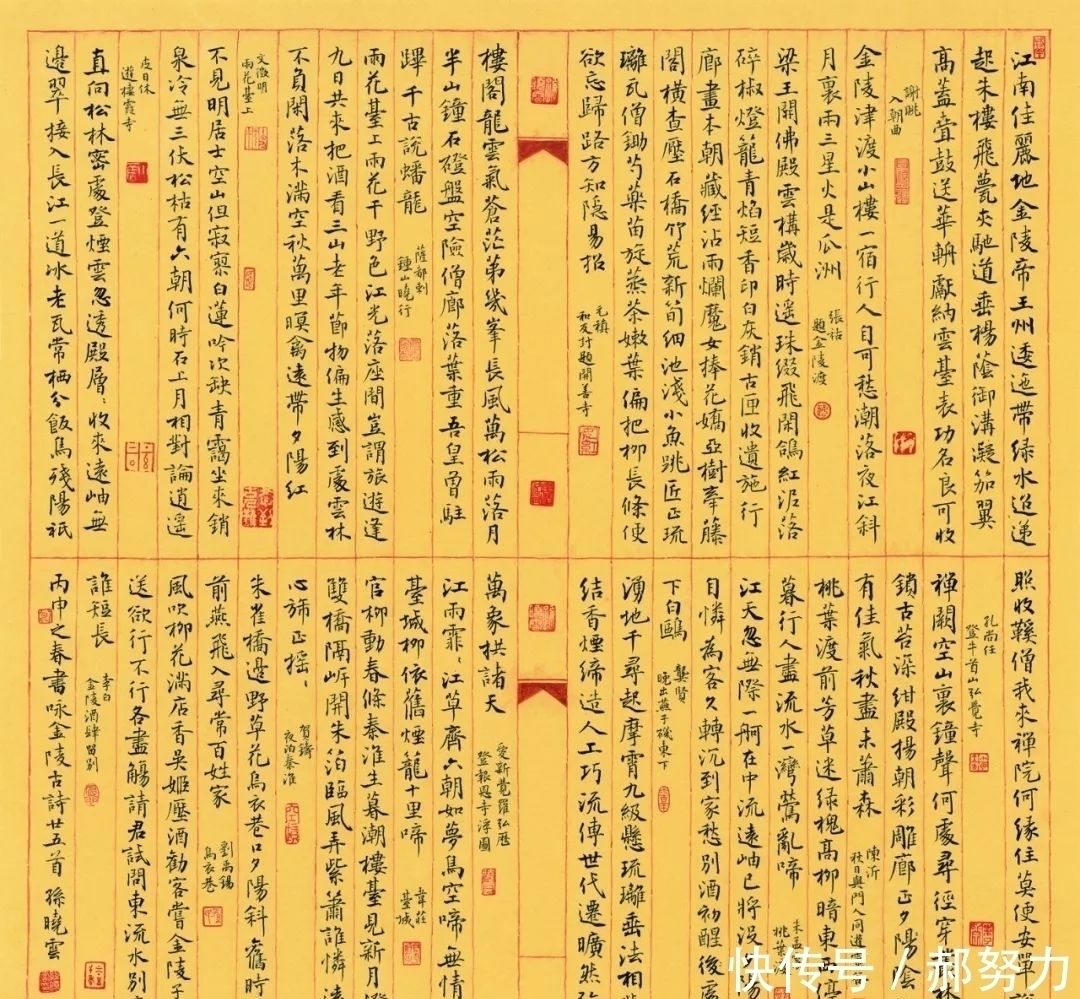 江南佳麗地金陵帝王州逶迤帶綠水迢遞
起朱樓飛甍夾馳道垂楊蔭御溝凝笳翼
高蓋疊鼓送華輈獻納雲臺表功名良可收
謝朓
入朝曲
金陵津渡小山樓一宿行人自可愁潮落夜江斜
月裏兩三星火是瓜洲
張祜
題金陵渡
梁王開佛殿雲構歲時遥珠綴飛閑鴿紅泥落
碎椒燈籠青焰短香印白灰銷古匣收遺施行
廊畫本朝藏經沾雨爛魔女捧花嬌亞樹牽藤
閣橫查壓石橋竹荒新筍細池淺小魚跳匠正琉
璃瓦僧鋤芍藥苗旋蒸茶嫩葉偏把柳長條便
欲忘歸路方知隱易招
元稹
和友封題開善寺
樓閣龍雲氣蒼茫第幾峯長風萬松雨落月
半山鐘石磴盤空險僧廊落葉重吾皇曾駐
蹕千古説蟠龍
薩都剌
鍾山曉行
雨花臺上雨花干野色江光落座間豈謂旅遊逢
九日共来把酒看三山老年節物偏生感到處雲林
不負閑落木滿空秋萬里暝禽遠帶夕陽紅
文徵明
雨花臺上
不見明居士空山但寂寥白蓮吟次缺青靄坐来銷
泉冷無三伏松枯有六朝何時石上月相對論逍遥
皮日休
遊棲霞寺
直向松林密處登煙雲忽透殿層：收來遠岫無
邊翠接入長江一道冰老瓦常栖分飯烏殘陽祇
照收鞵僧我来禪院何緣住莫便安單
孔尚任
登牛首山弘覺寺
禅闕空山裏鐘聲何處尋徑穿
鎖古苔深紺殿揚朝彩雕廊正夕陽陰
有佳氣秋盡未蕭森
陳沂
秋日與門人同遊
桃葉渡前芳草迷綠槐高柳暗東西
暮行人盡流水一灣鶯亂啼
桃葉
江天忽無際一舸在中流遠岫已將没
自憐為客久轉沉到家愁別酒初醒後
下白鷗
龔賢
晚出燕子磯東下
湧地千尋起摩霄九級懸琉璃垂法相
結香煙締造人工巧流傳世代遷曠然
萬象拱諸天
愛新覺羅弘曆
登報恩寺浮圖
江雨霏：江草齊六朝如夢鳥空啼無情
臺城柳依舊煙籠十里啼
韋莊
臺城
官柳動春條秦淮生暮潮樓臺見新月
雙橋隔岸開朱箔臨風弄紫簫誰憐
心旆正摇：
賀鑄
夜泊秦淮
朱雀橋邊野草花烏衣巷口夕陽斜舊時
前燕飛入尋常百姓家
劉禹錫
烏衣巷
風吹柳花滿店香吳姬壓酒勸客嘗金陵子
送欲行不行各盡觴請君試問東流水別
誰短長
李白
金陵酒肆留別
丙申之春書咏金陵古詩廿五首 孫曉雲
快传号 / 郝努力